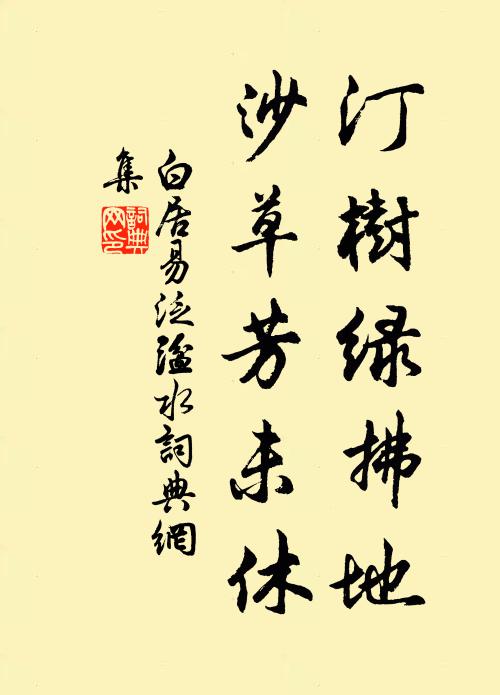 汀樹绿拂地
沙草芳未休
白居易泛湓水詞典網
集
詞典网印